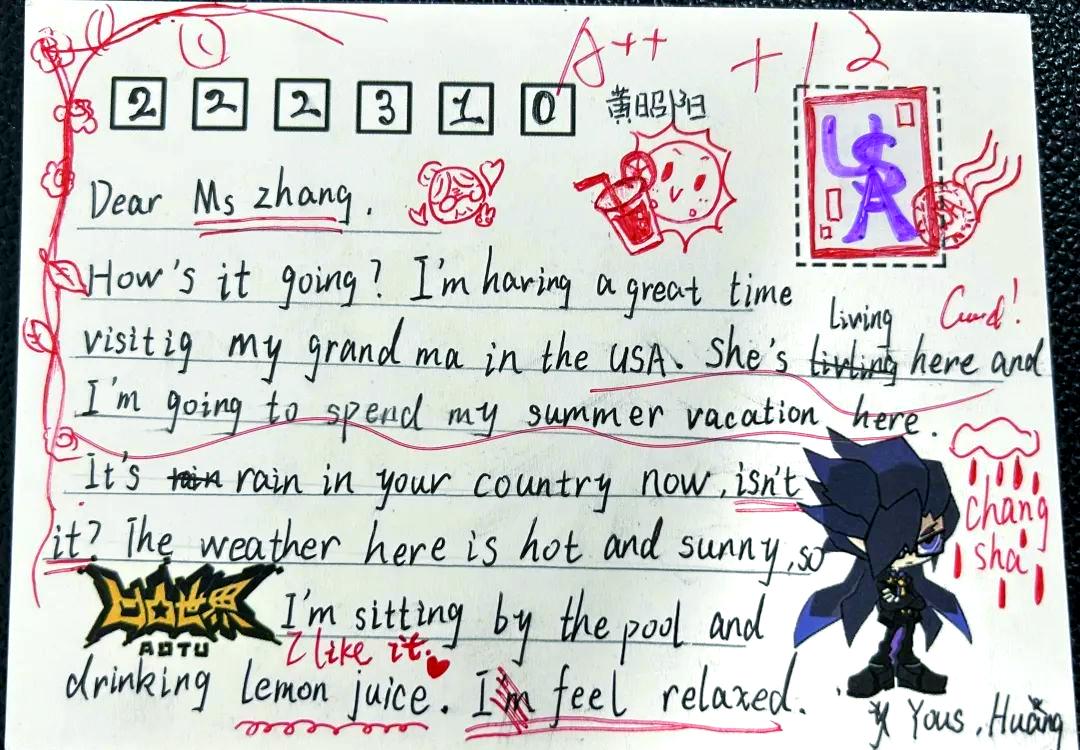 A++ +12
2 2 2 3 1 0 黄昭阳
USA
Dear Ms zhang.
How's it going? I'm having a great time
Living
visitig my grand ma in the USA. She's livling here and
I'm going to spend my summer vacation here.
It's rain rain in your country now, isn't
it? The weather here is hot and sunny, so
chang
sha
凹凸世界
AOTU
I'm sitting by the pool and
I like it.
drinking lemon juice. I'm feel relaxed.
Yous, Huang